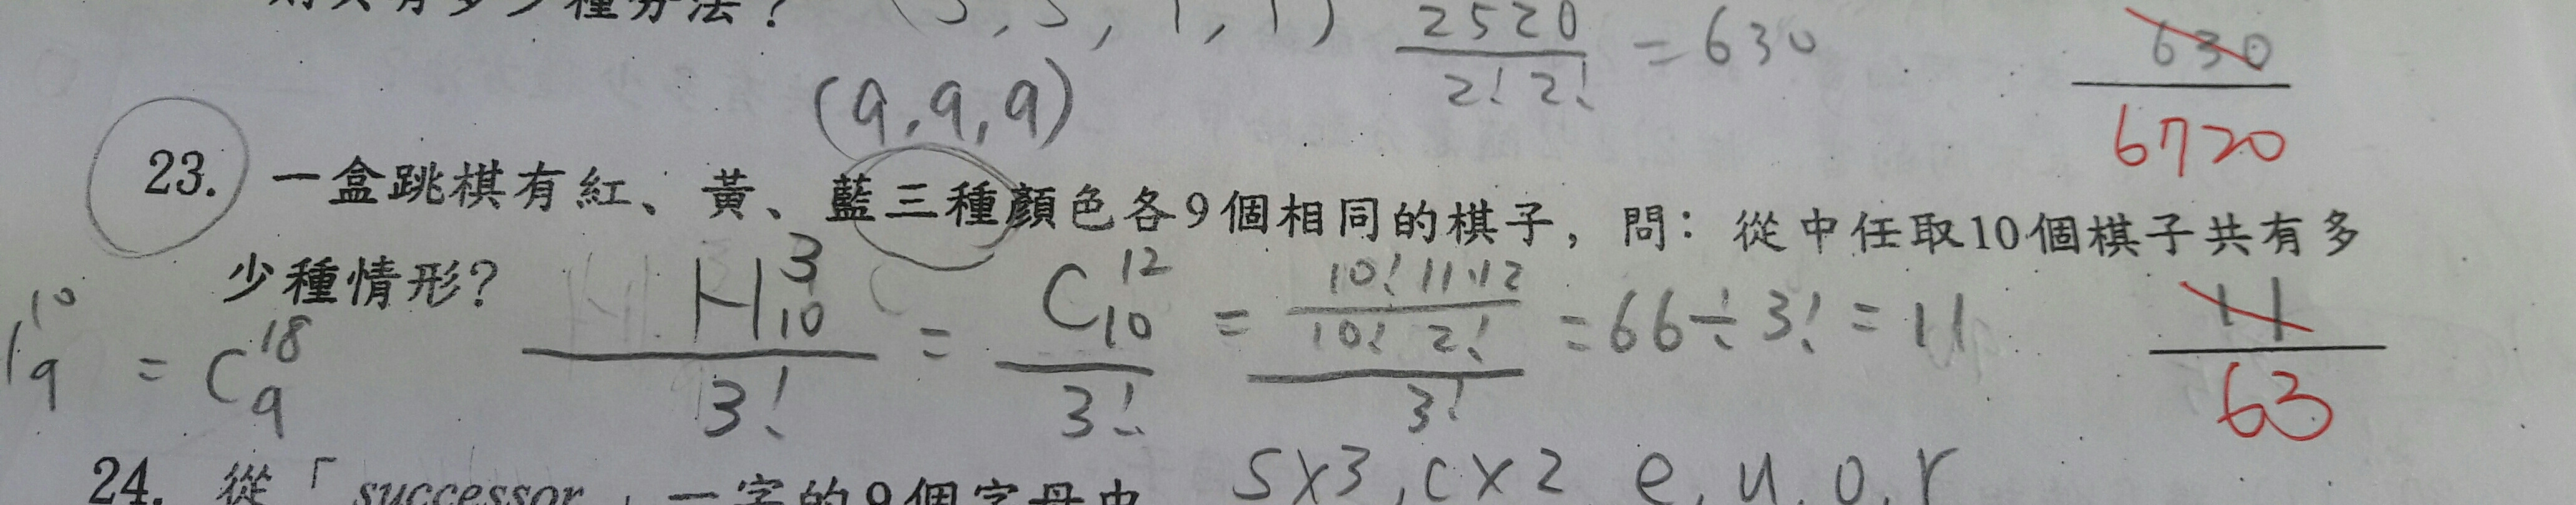 種分法？ ( 3, 3, 1, 1 ) 2520 / 2! 2! = 630
630
6720
(9, 9, 9)
23. 一盒跳棋有紅、黃、藍三種顏色各9個相同的棋子，問：從中任取10個棋子共有多
少種情形？
H³₁₀ / 3! = C¹²₁₀ / 3! = (10! 11·12 / 10! 2!) / 3! = 66÷3! = 11
11
63
= C¹⁸₉
24. 從「successor」一字的9個字母中 s×3, c×2, e, u, o, r